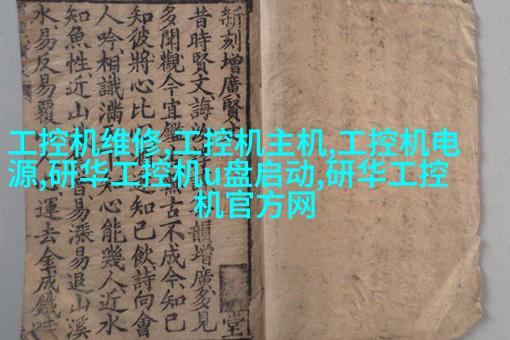 工控机维修,工控机主机,工控机电
源,研华工控机u盘启动,研华工控
机官方网
新刻增廣賢
堂
昔時賢文誨 韻增廣多見
多聞觀今宜鑑 無古不成今知己
知彼將心比 知己飲詩向會
人吟相識滿 心能幾人近水
知魚性近山 音易漲易退山溪
水易反易覆 運去金成鐵